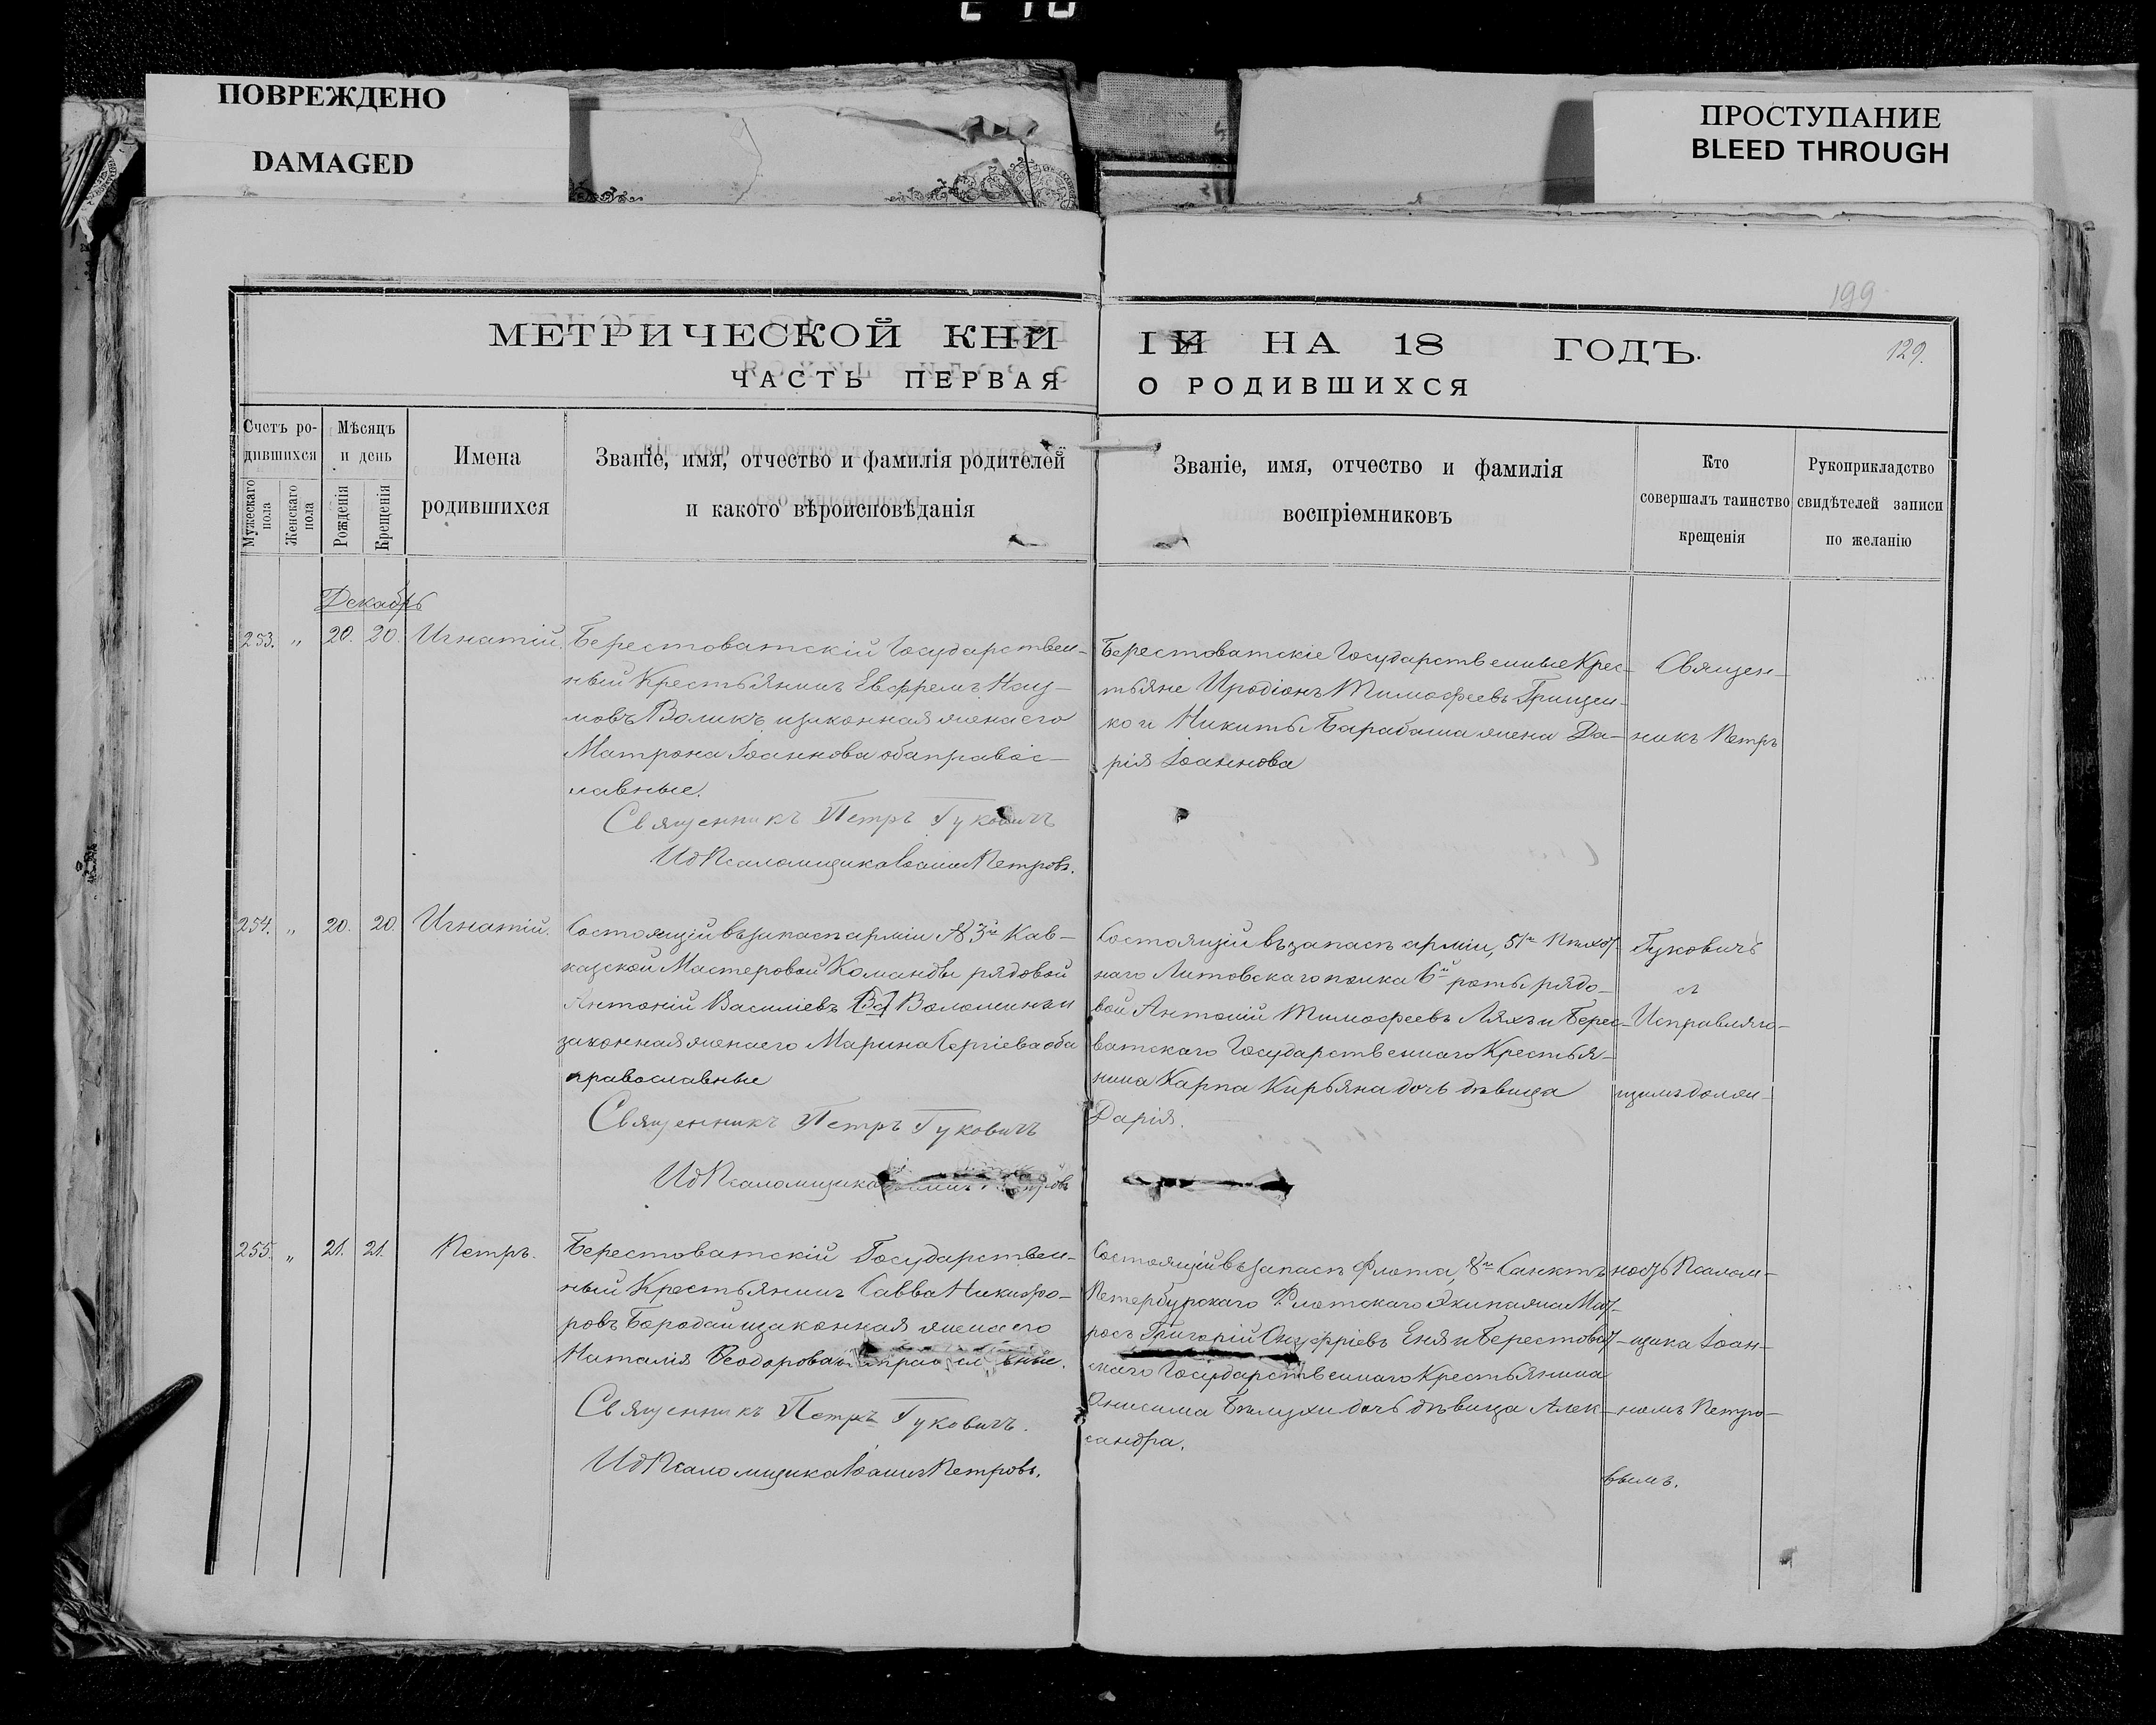 ПОВРЕЖДЕНО
DAMAGED
ПРОСТУПАНИЕ
BLEED THROUGH
199
129.
МЕТРИЧЕСКОЙ КНИ
ЧАСТЬ ПЕРВАЯ
ГИ НА 18 ГОДЪ.
О РОДИВШИХСЯ
Счетъ ро-
дившихся
Мужескаго пола
Женскаго пола
Мѣсяцъ
и день
Рожденія
Крещенія
Имена
родившихся
Званіе, имя, отчество и фамилія родителей
и какого вѣроисповѣданія
Званіе, имя, отчество и фамилія
воспріемниковъ
Кто
совершалъ таинство
крещенія
Рукоприкладство
свидѣтелей записи
по желанію
Декабрь
253. " 20. 20. Игнатій.
Берестоватскій Государствен-
ный Крестьянинъ Евфремъ Нау-
мовъ Воликъ и законная жена его
Матрона Іоаннова оба правос-
лавные.
Священникъ Петръ Гуковичъ
И д Псаломщика Іоаннъ Петровъ.
Берестоватскіе Государственные Крес-
тьяне Иродіонъ Тимофеевъ Грицен-
ко и Никиты Барабаша жена Да-
рія Іоаннова
Священ-
никъ Петръ
254. " 20. 20. Игнатій.
Состоящій въ запасѣ арміи № 3й Кав-
казской Мастеровой Команды рядовой
Антоній Василіевъ [Во] Волошинъ и
законная жена его Марина Сергіева оба
православные
Священникъ Петръ Гуковичъ
И д Псаломщика
Состоящій въ запасѣ арміи, 51го Пѣхот-
наго Литовскаго полка 6й роты рядо-
вой Антоній Тимофеевъ Ляхъ и Берес-
ватскаго Государственнаго Крестья-
нина Карпа Кирьяна дочь дѣвица
Дарія.
Гуковичъ
съ
Исправляю-
щимъ долж-
255. " 21. 21. Петръ.
Берестоватскій Государствен-
ный Крестьянинъ Савва Никифо-
ровъ Бородай и законная жена его
Наталія Ѳеодорова
Священникъ Петръ Гуковичъ.
И д Псаломщика Іоаннъ Петровъ.
Состоящій въ запасѣ Флота, 8го Санктъ
Петербурскаго Флотскаго Экипажа Мат-
росъ Григорій Онуфріевъ Еня и Берестоват-
скаго Государственнаго Крестьянина
Онисима Бѣлухи дочь дѣвица Алек-
сандра.
ность Псалом-
щика Іоан-
номъ Петро-
вымъ.